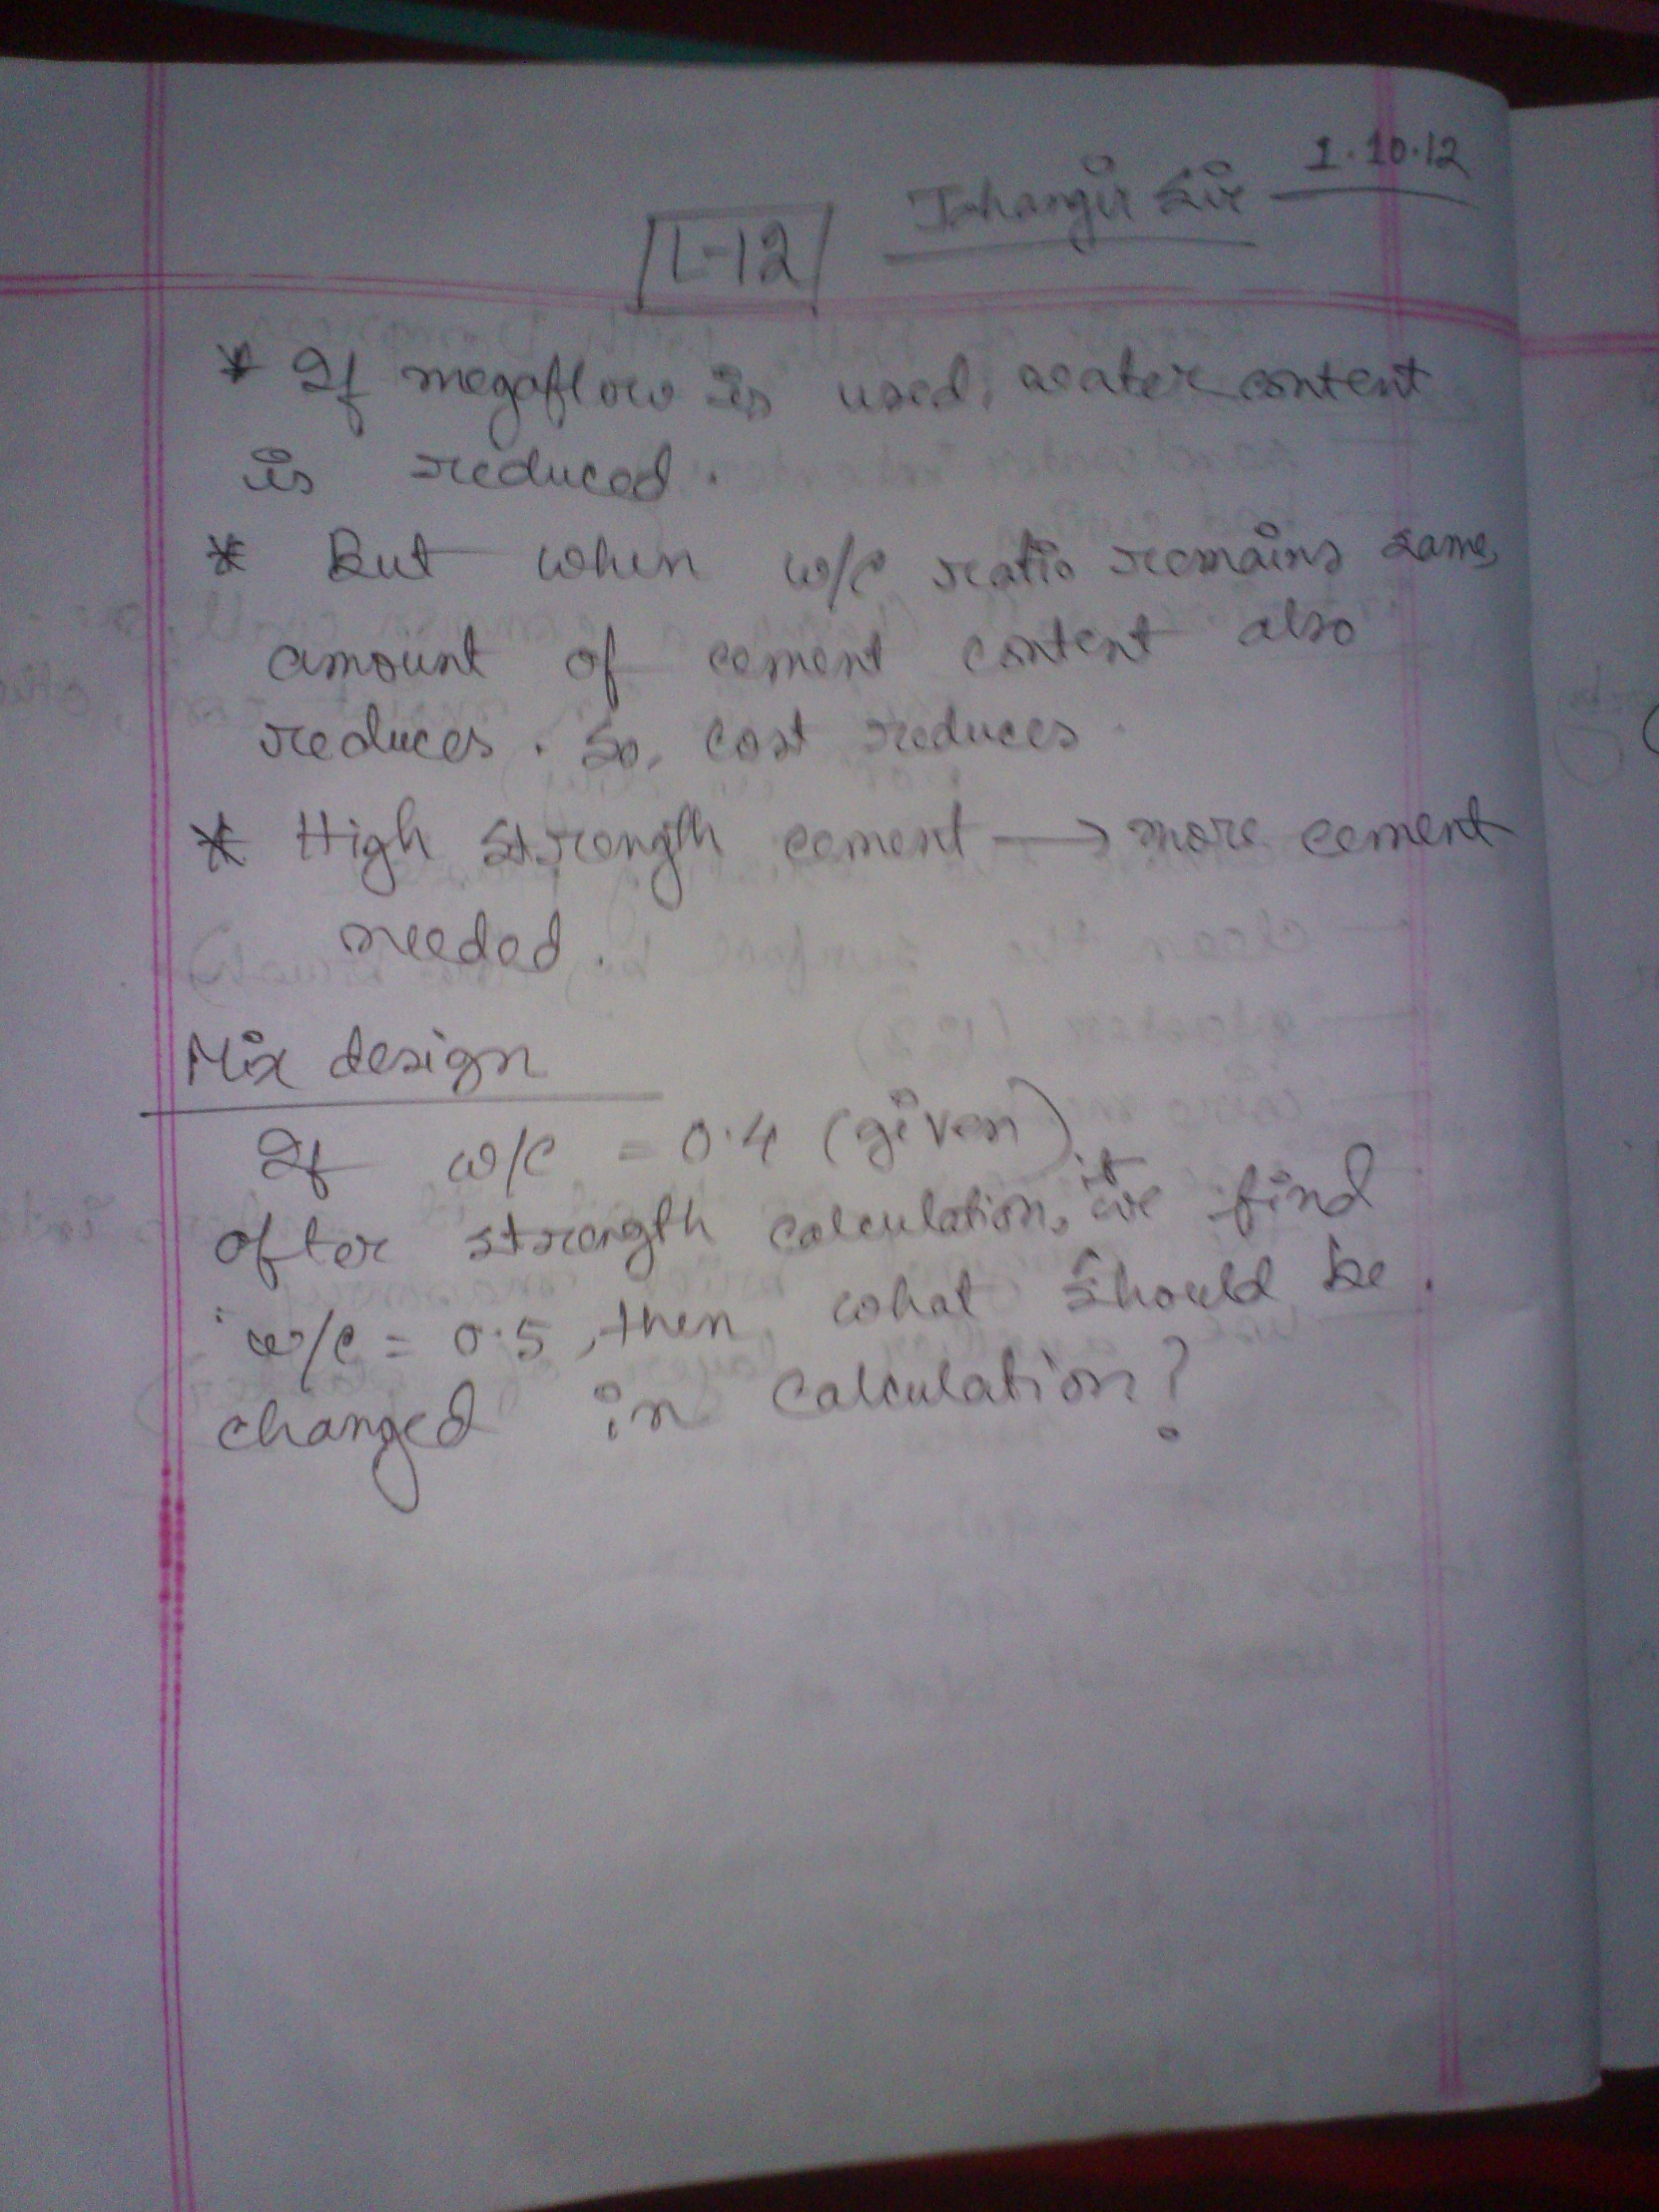 1.10.12
L-12 Jahangir Sir
* If megaflow is used, water content
is reduced.
* But when w/c ratio remains same,
amount of cement content also
reduces. So, cost reduces.
* High strength cement → more cement
needed.
Mix design
If w/c = 0.4 (given)
after strength calculation, if we find
w/c = 0.5, then what should be
changed in calculation?